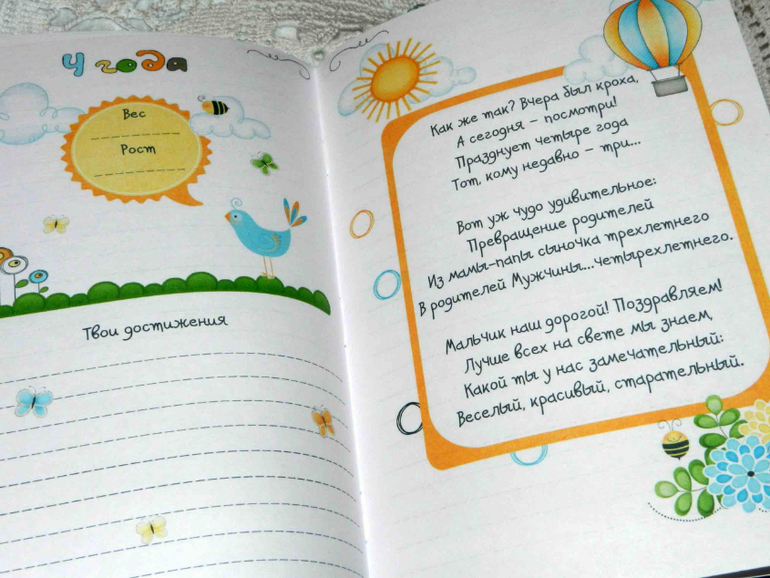 4 года
Вес
Рост
Твои достижения
Как же так? Вчера был кроха,
А сегодня – посмотри!
Празднует четыре года
Тот, кому недавно – три...
Вот уж чудо удивительное:
Превращение родителей
Из мамы-папы сыночка трехлетнего
В родителей Мужчины...четырехлетнего.
Мальчик наш дорогой! Поздравляем!
Лучше всех на свете мы знаем,
Какой ты у нас замечательный:
Веселый, красивый, старательный.